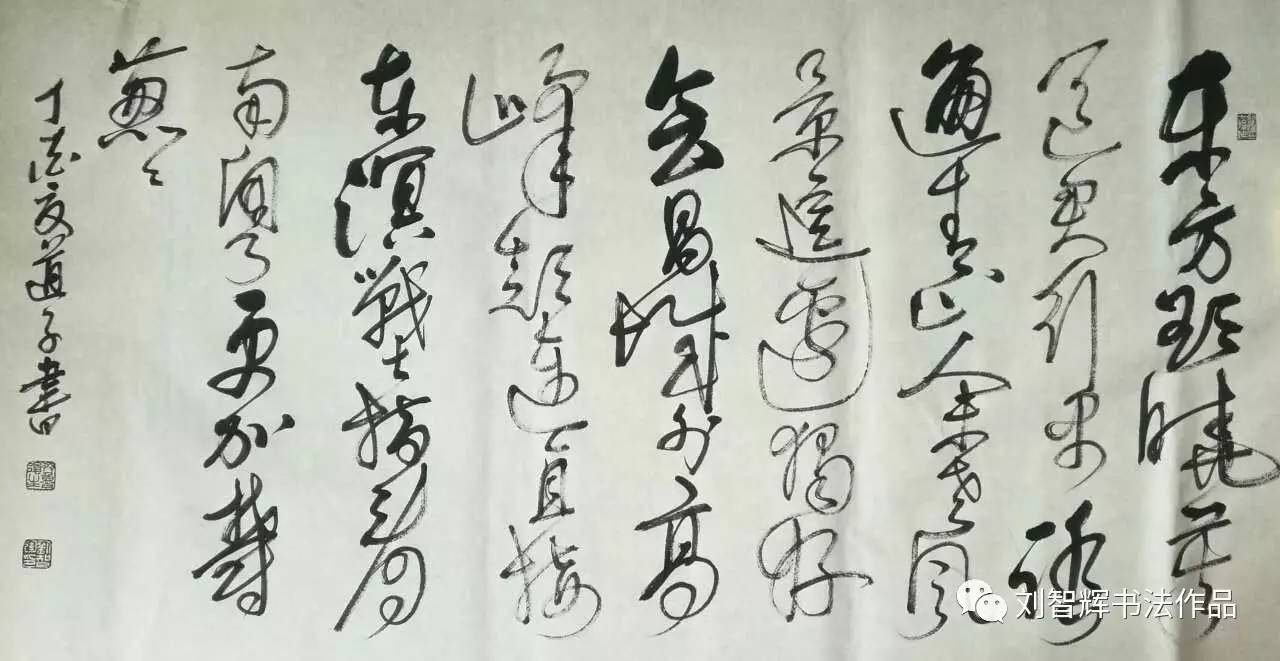 东方欲晓莫
道君行早踏
遍青山人未老风
景這邊獨好
会昌城外高
峰颠连直接
东溟戰士指看
南粤更加鬱
葱々
丁酉夏道子書
刘智辉书法作品